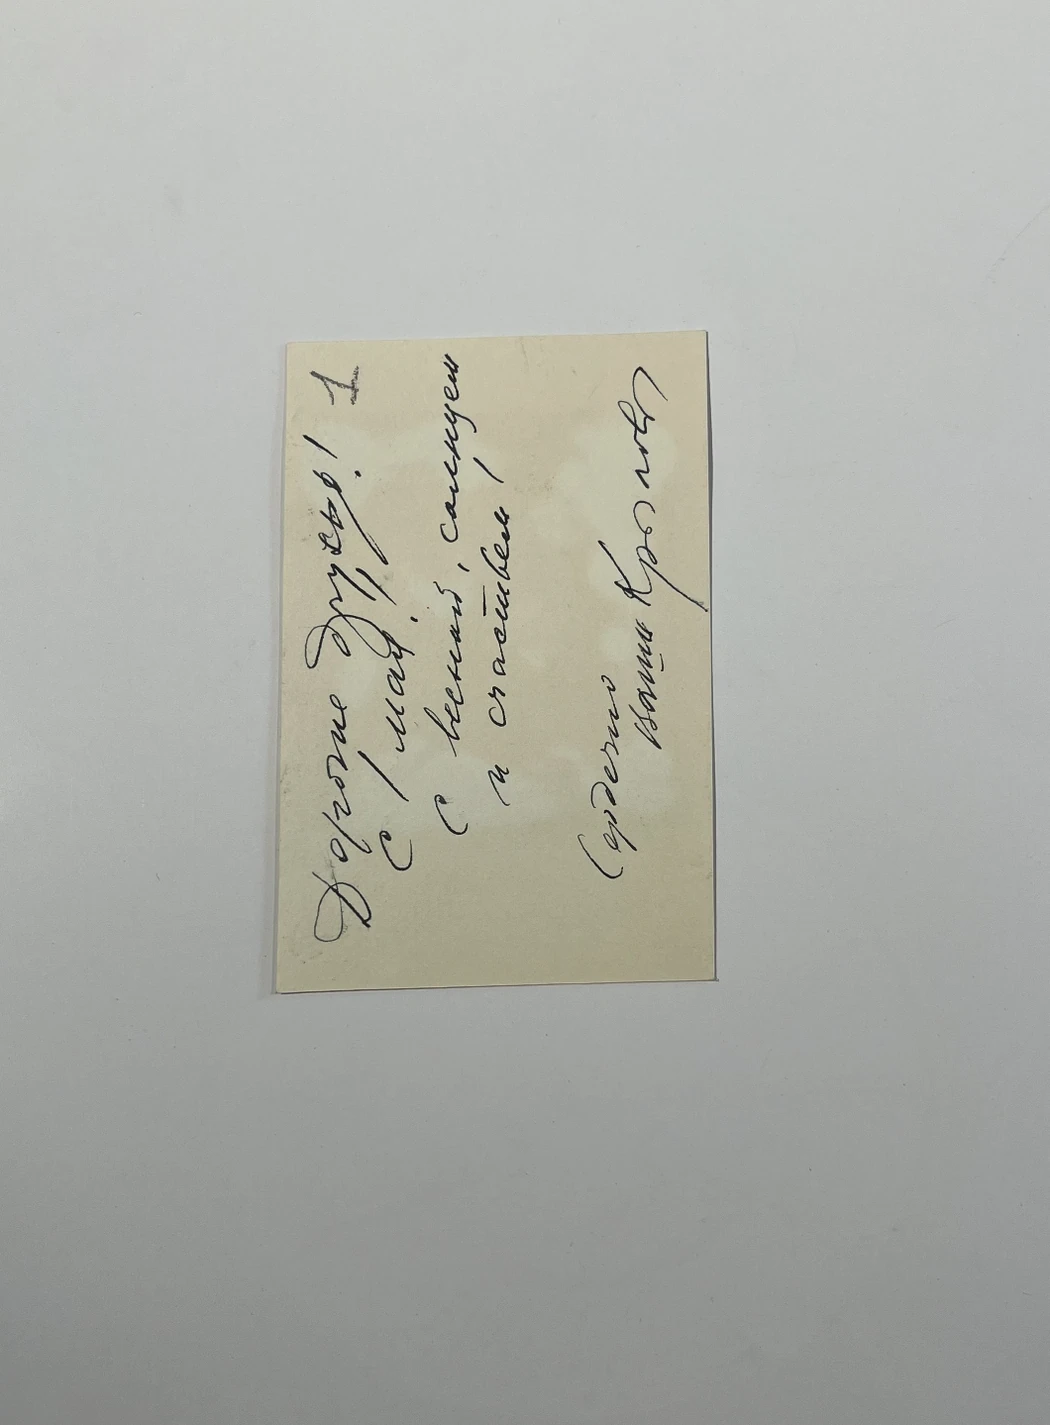 1
Дорогие друзья!
С 1 мая!
С весной, солнцем
и счастьем!
Сердечно
ваши Крыловы